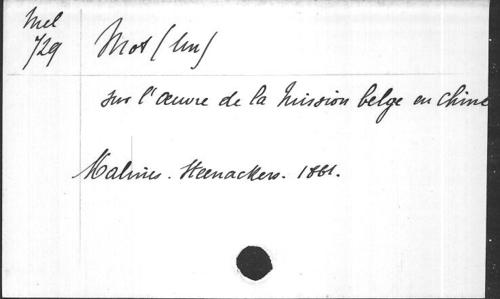 Mel
729
Mot (Un)
sur l'œuvre de la Mission belge en Chine
Malines. Steenackers. 1881.